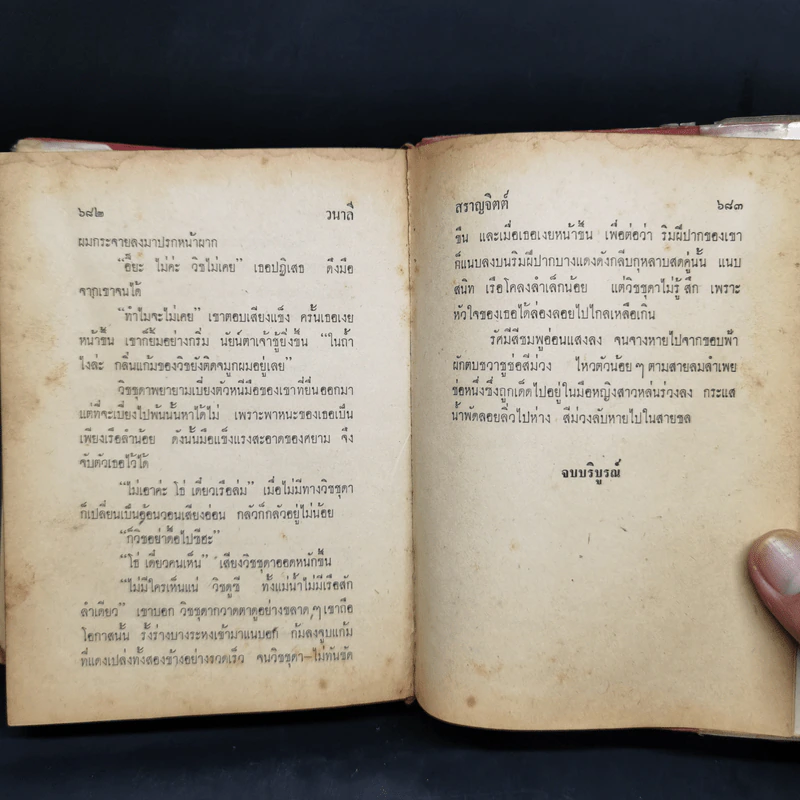 ๖๘๒ วนาลี
ผมกระจายลงมาปรกหน้าผาก
“อี๊ยะ ไม่ค่ะ วิชไม่เคย” เธอปฏิเสธ ดึงมือ
จากเขาจนได้
“ทำไมจะไม่เคย” เขาตอบเสียงแข็ง ครั้นเธอเงย
หน้าขึ้น เขาก็ยิ้มอย่างกริ่ม นัยน์ตาเจ้าชู้ยิ่งขึ้น “ในถ้ำ
ไงล่ะ กลิ่นแก้มของวิชยังติดจมูกผมอยู่เลย”
วิชชุดาพยายามเบี่ยงตัวหนีมือของเขาที่ยื่นออกมา
แต่ที่จะเบี่ยงไปพ้นนั้นหาได้ไม่ เพราะพาหนะของเธอเป็น
เพียงเรือลำน้อย ดังนั้นมือแข็งแรงสะอาดของศยาม จึง
จับตัวเธอไว้ได้
“ไม่เอาค่ะ โธ่ เดี๋ยวเรือล่ม” เมื่อไม่มีทางวิชชุดา
ก็เปลี่ยนเป็นอ้อนวอนเสียงอ่อน กลัวก็กลัวอยู่ไม่น้อย
“ก็วิชอย่าดื้อไปซีฮะ”
“โธ่ เดี๋ยวคนเห็น” เสียงวิชชุดาออดหนักขึ้น
“ไม่มีใครเห็นแน่ วิชดูซี ทั้งแม่น้ำไม่มีเรือสัก
ลำเดียว” เขาบอก วิชชุดากวาดตาดูอย่างขลาด ๆ เขาถือ
โอกาสนั้น รั้งร่างบางระหงเข้ามาแนบอก ก้มลงจูบแก้ม
ที่แดงเปล่งทั้งสองข้างอย่างรวดเร็ว จนวิชชุดา—ไม่ทันขัด
สราญจิตต์ ๖๘๓
ขืน และเมื่อเธอเงยหน้าขึ้น เพื่อต่อว่า ริมฝีปากของเขา
ก็แนบลงบนริมฝีปากบางแดงดังกลีบกุหลาบสดคู่นั้น แนบ
สนิท เรือโคลงลำเล็กน้อย แต่วิชชุดาไม่รู้สึก เพราะ
หัวใจของเธอได้ล่องลอยไปไกลเหลือเกิน
รัศมีสีชมพูอ่อนแสงลง จนจางหายไปจากขอบฟ้า
ผักตบชวาชูช่อสีม่วง ไหวตัวน้อย ๆ ตามสายลมลำเพย
ช่อหนึ่งซึ่งถูกเด็ดไปอยู่ในมือหญิงสาวหล่นร่วงลง กระแส
น้ำพัดลอยลิ่วไปห่าง สีม่วงลับหายไปในสายชล
จบบริบูรณ์